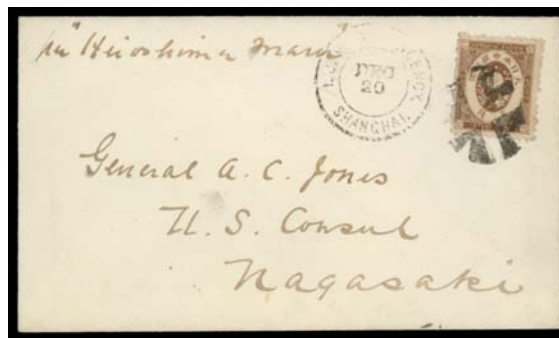 per "Hiroshima Maru"
DEC
20
SHANGHAI.
General A. C. Jones
U. S. Consul
Nagasaki